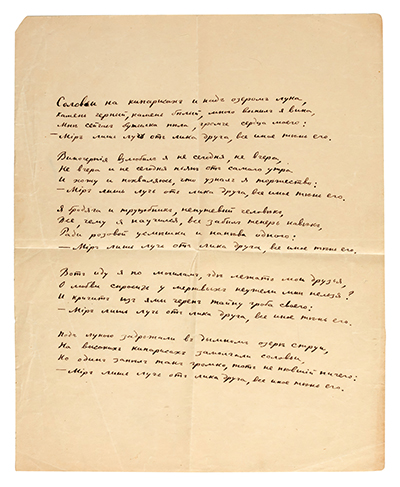 Соловьи на кипарисахъ и надъ озеромъ луна,
Камень черный, камень бѣлый, много выпилъ я вина,
Мнѣ сейчасъ бутылка пѣла, громче сердца моего:
— Міръ лишь лучъ отъ лика друга, все иное тѣнь его.
Виночерпія взлюбилъ я не сегодня, не вчера,
Не вчера и не сегодня пьянъ отъ самаго утра
И хожу и похваляюсь, что узналъ я торжество:
— Міръ лишь лучъ отъ лика друга, все иное тѣнь его.
Я бродяга и трущобникъ, непутевый человѣкъ,
Все чему я научился, все забылъ теперь навѣкъ,
Ради розовой усмѣшки и напѣва одного:
— Міръ лишь лучъ отъ лика друга, все иное тѣнь его.
Вотъ иду я по могиламъ, гдѣ лежатъ мои друзья,
О любви спросить у мертвыхъ неужели мнѣ нельзя?
И кричитъ изъ ямы черепъ тайну гроба своего:
— Міръ лишь лучъ отъ лика друга, все иное тѣнь его.
Подъ луною задрожали въ дымномъ озерѣ струи,
На высокихъ кипарисахъ замолчали соловьи,
Но одинъ запѣлъ такъ громко, тотъ не пѣвшій ничего:
— Міръ лишь лучъ отъ лика друга, все иное тѣнь его.